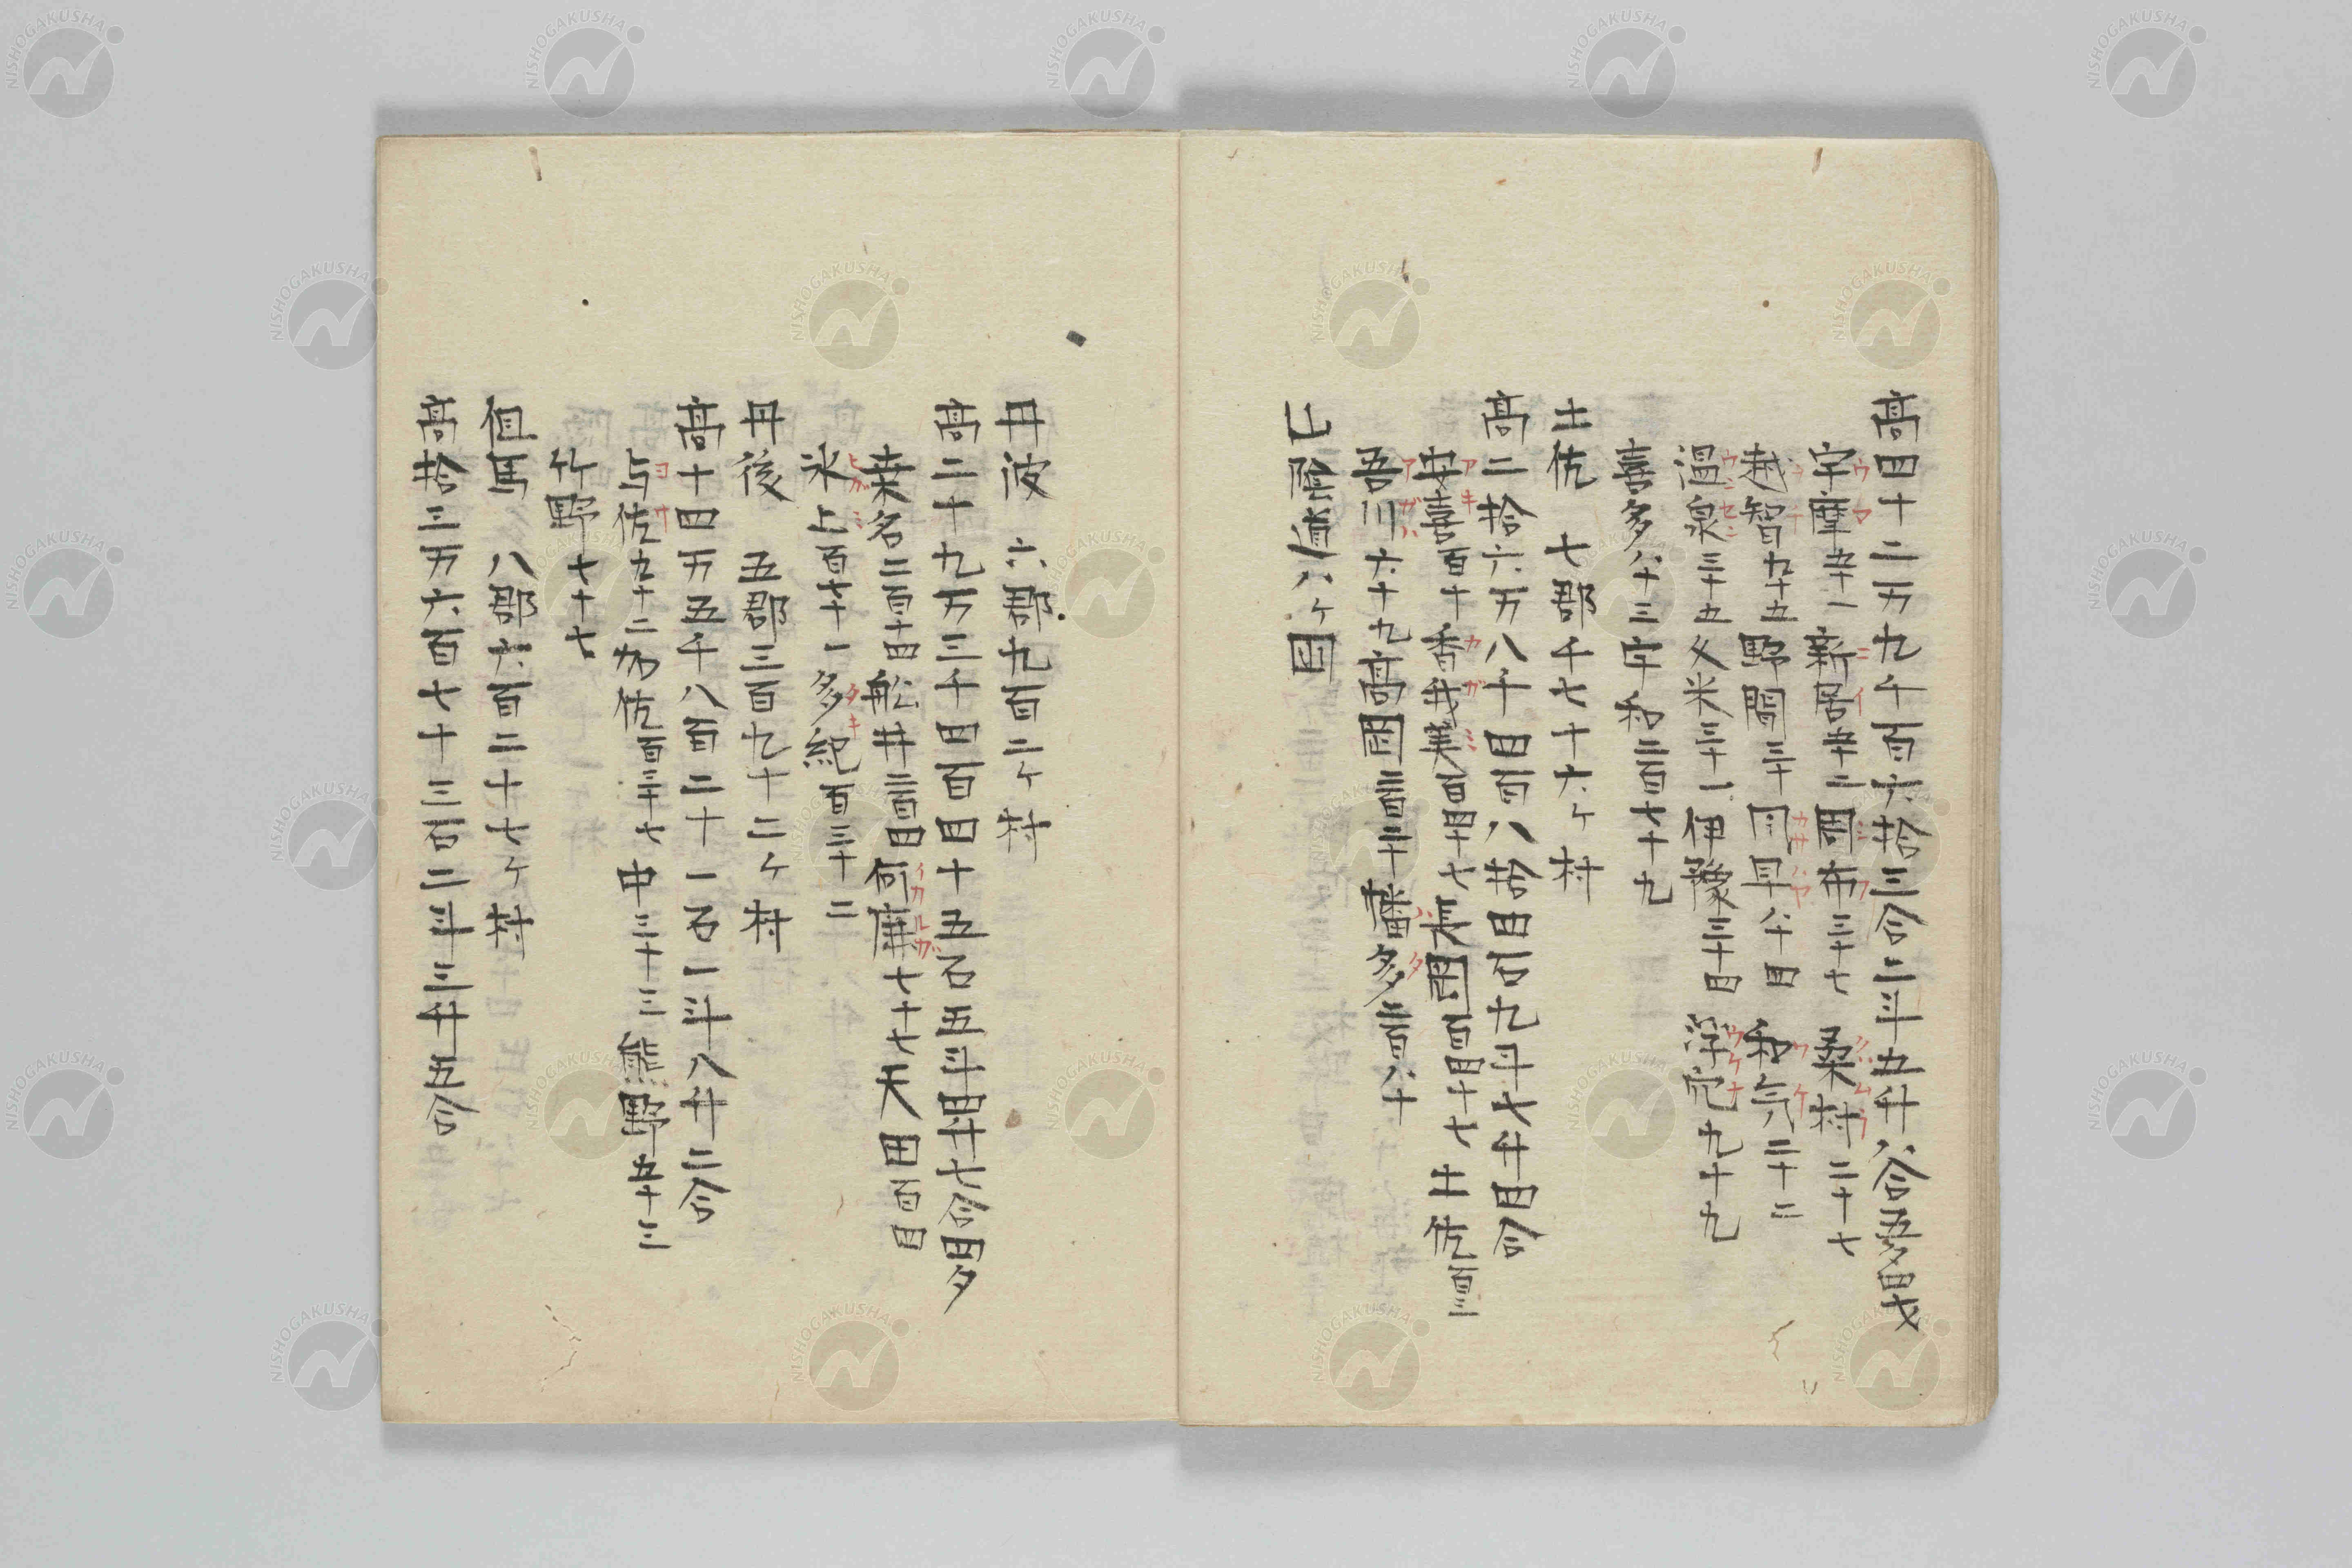 高四十二万九千百六拾三合二斗五升八合五夕四戈
宇摩五十一新居五十二周布三十七桑村二十七
越智九十五野間三十風早八十四和気三十二
温泉三十五久米三十一伊豫三十四浮穴九十九
喜多八十三宇和二百七十九
土佐 七郡千七十六ヶ村
高二拾六万八千四百八拾四石九斗七升四合
安喜百十香我美百四十七長岡百四十七土佐百三
吾川六十九高岡三百三十幡多三百八十
山陰道八ヶ国
丹波 六郡九百二ヶ村
高二十九万三千四百四十五石五斗四升七合四夕
桒名二百十四舩井三百四何鹿七十七天田百四
氷上百七十一多紀百三十二
丹後 五郡三百九十二ヶ村
高十四万五千八百二十一石一斗八升二合
与佐九十二加佐百三十七中三十三熊野五十三
竹野七十七
但馬 八郡六百二十七ヶ村
高拾三万六百七十三石二斗三升五合
NISHOGAKUSHA